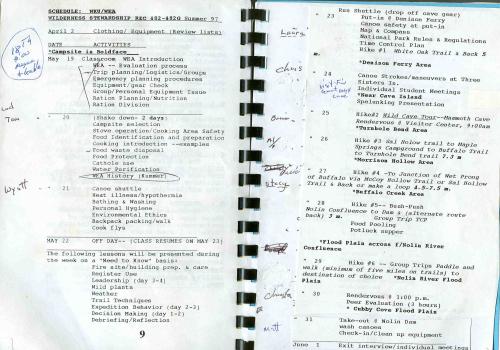 SCHEDULE: WKU/WEA
WILDERNESS STEWARDSHIP Rec 482-482G Summer 97
April 2 Clothing/ Equipment (Review lists)
DATE ACTIVITIES
*Campsite is Boldface
May 19 Classroom WEA Introduction
WEA -- Evaluation process
Trip planning/Logistics/Groups
Emergency planning procedures
Equipment/gear Check
Group/Personal Equipment Issue
Ration Planning/Nutrition
Ration Division
20 (Shake down- 2 days)
Campsite selection
Stove operation/Cooking Area Safety
Food Identification and preparation
Cooking introduction --examples
Food waste disposal
Food Protection
Cathole use
Water Purification
WEA History (Summer)
Tom
Wyatt
21 Canoe shuttle
Heat illness/hypothermia
Bathing & Washing
Personal Hygiene
Environmental Ethics
Backpack packing/walk
Cook flys
MAY 22 OFF DAY-- (CLASS RESUMES ON MAY 23)
The following lessons will be presented during
the week on a "Need to Know" basis:
Fire site/building prep. & care
Register Use
Leadership (day 3-4)
Wild plants
Weather
Trail Techniques
Expedition Behavior (day 2-3)
Decision Making (day 1-2)
Debriefing/Reflection
9
Res Shuttle (drop off cave gear)
23 Put-in @ Dennison Ferry
Canoe safety at put-in
Map & Compass
National Park Rules & Regulations
Time Control Plan
Hike #1 White Oak Trail & Back 5
m.
*Denison Ferry Area
Laura
Chris
24 Canoe Strokes/maneuvers at Three
Sisters Is.
Individual Student Meetings
*Near Cave Island
Spelunking Presentation
25 Hike#2 Wild Cave Tour--Mammoth Cave
Rendezvous @ Visitor Center, 9:00am
*Turnhole Bend Area
26 Hike #3 Sal Hollow trail to Maple
Springs Campground to Buffalo Trail
to Turnhole Bend trail 7.3 m
*Morrison Hollow Area
27 Hike #4 -To Junction of Wet Prong
of Buffalo via McCoy Hollow Trail or Sal Hollow
Trail & Back or make a loop 4.5-7.5 m.
*Buffalo Creek Area
Stacy
28 Hike #5-- Bush-Push
Nolin Confluence to Dam & (alternate route
back) 3 m. Group Trip TCP
Food Pooling
Potluck supper
*Flood Plain across f/Nolin River
Confluence
29 Hike #6 -- Group Trips Paddle and
walk (minimum of five miles on trails) to
destination of choice *Nolin River Flood
Plain
30 Rendezvous @ 1:00 p.m.
Peer Evaluation (3 hours)
* Cubby Cove Flood Plain
Matt
31 Take-out @ Nolin Dam
wash canoes
Check-in/Clean up equipment
June 1 Exit interview/individual meetings